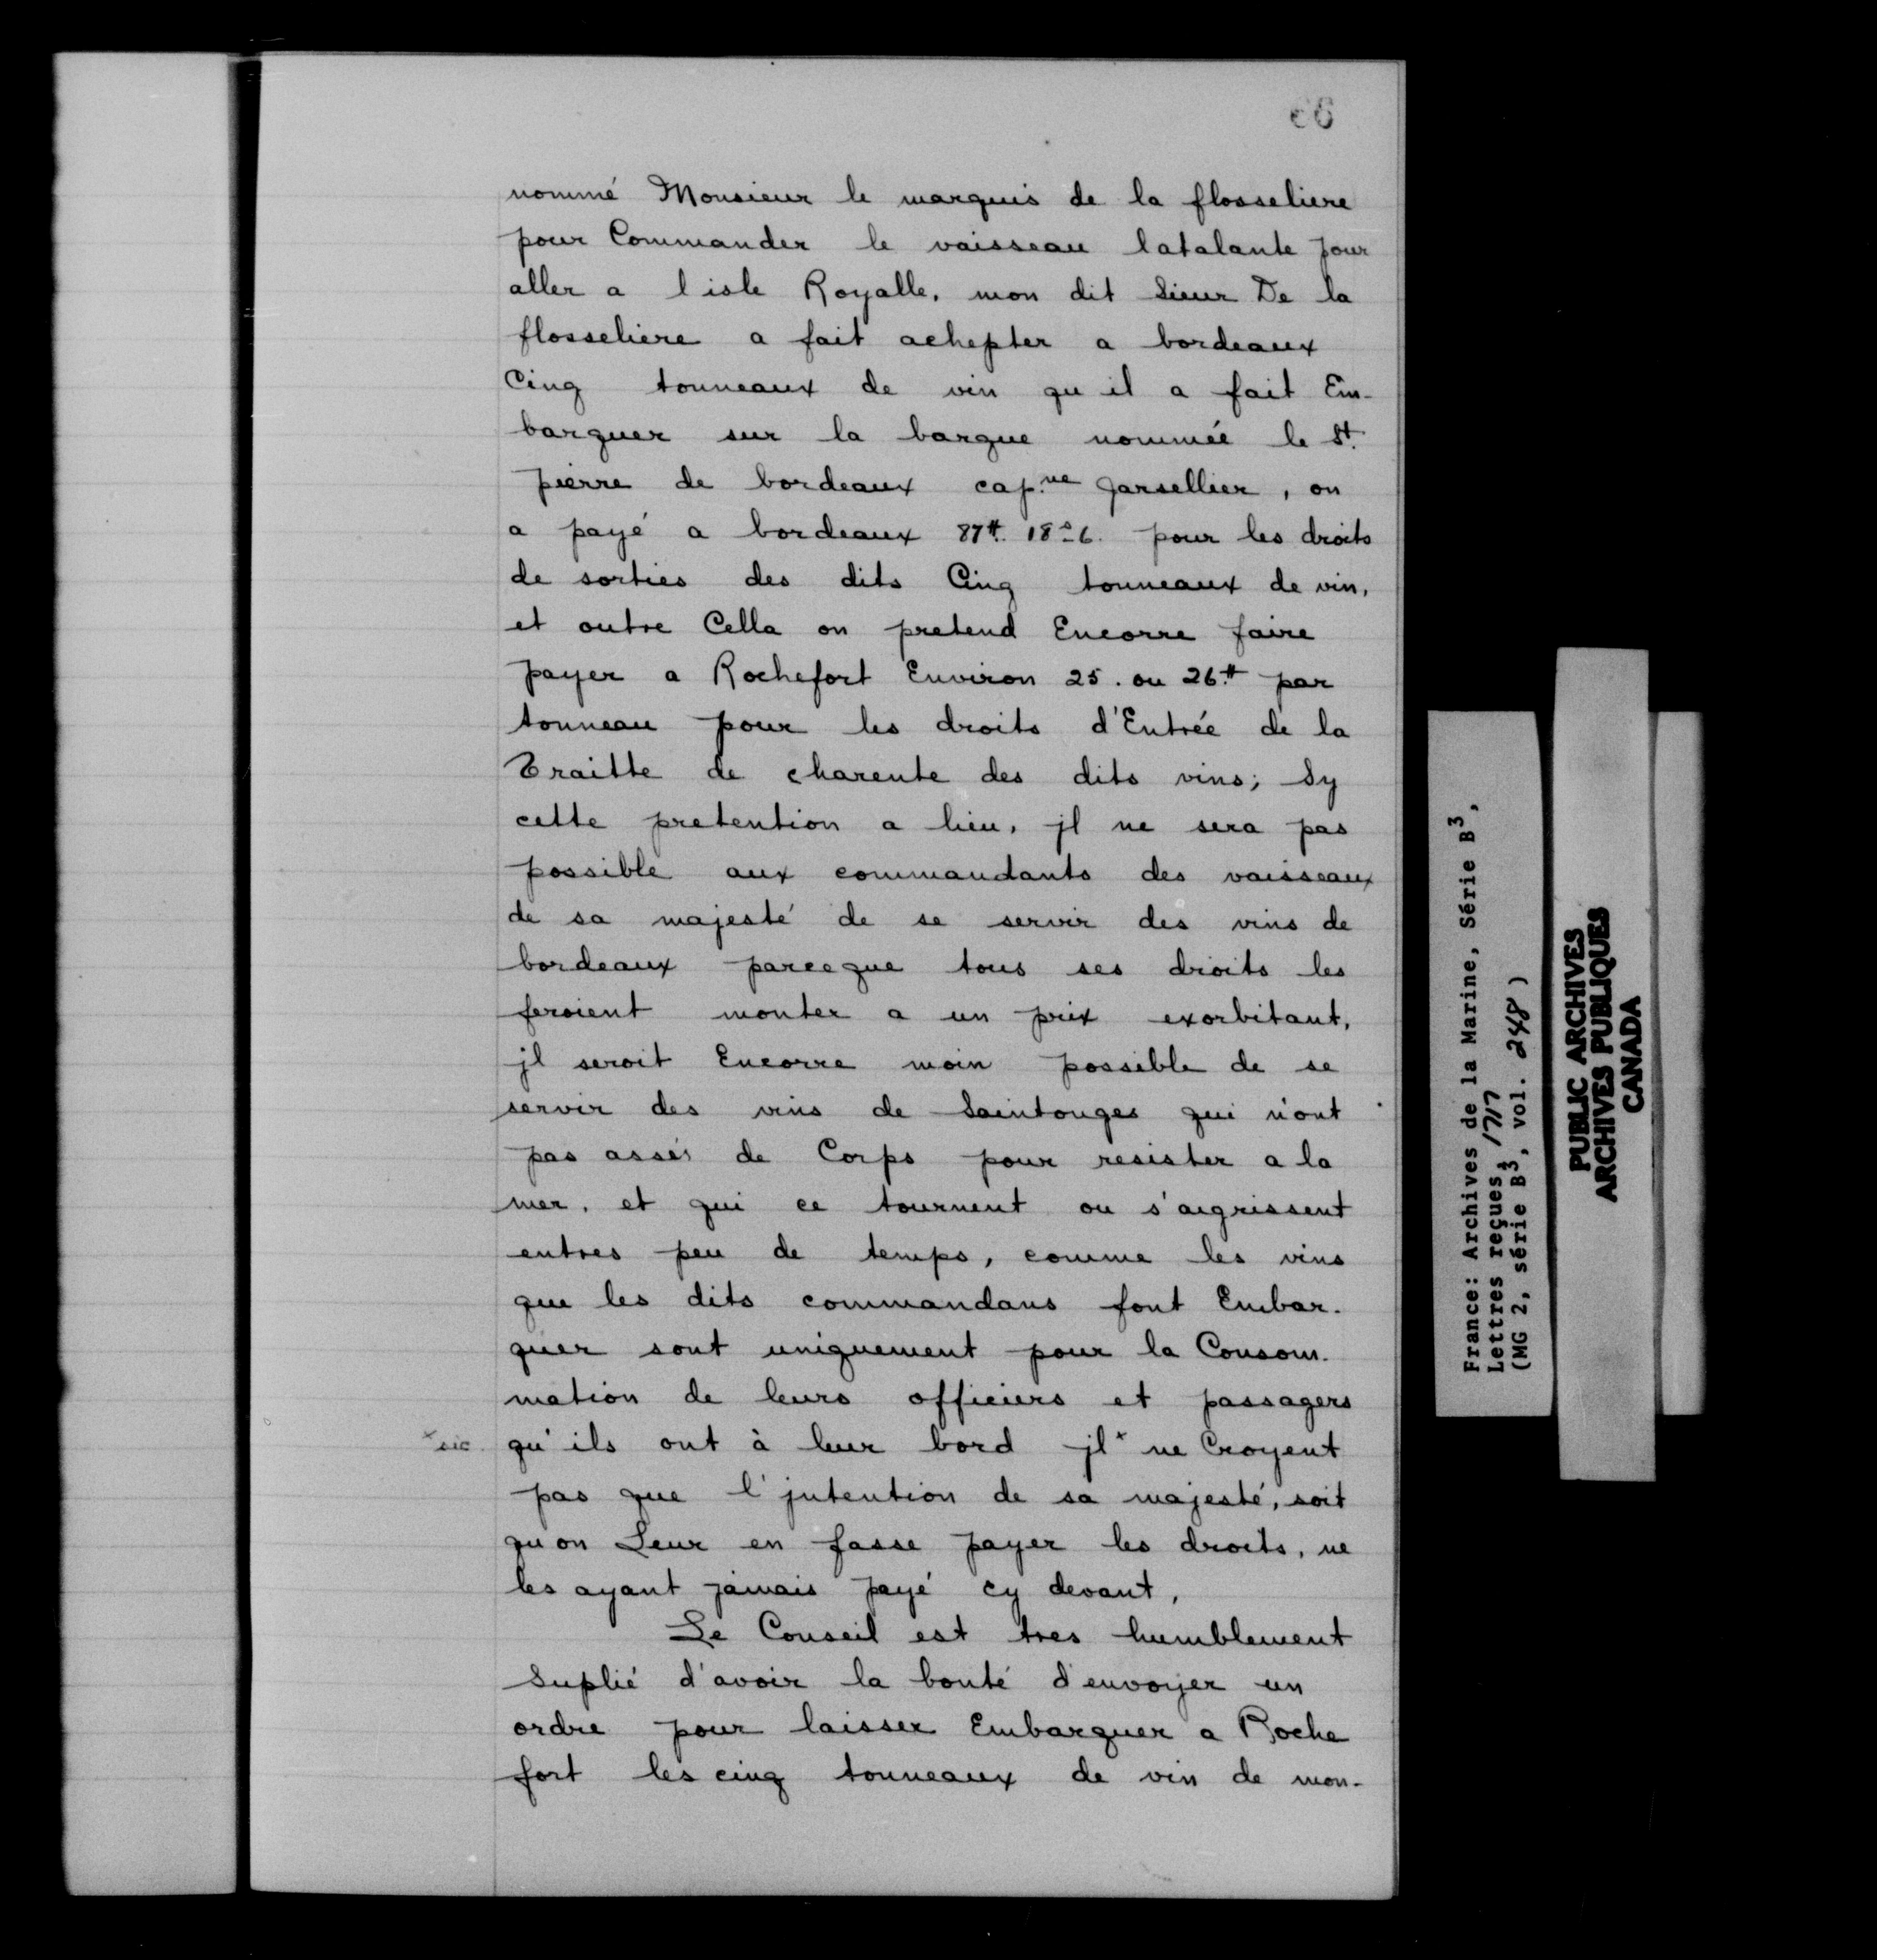 66
nommé Monsieur le marquis de la flosseliere
pour Commander le vaisseau latalante pour
aller a l isle Royalle, mon dit Sieur De la
flosseliere a fait achepter a bordeaux
Cinq tonneaux de vin qu il a fait Em-
barquer sur la barque nommée le St.
pierre de bordeaux cap.ne Jarsellier, on
a payé a bordeaux 87tt. 18s 6. pour les droits
de sorties des dits Cinq tonneaux de vin,
et outre Cella on pretend Encorre faire
payer a Rochefort Environ 25. ou 26.tt par
tonneau pour les droits d'Entrée de la
Traitte de charente des dits vins; Sy
cette pretention a lieu, jl ne sera pas
possible aux commandants des vaisseaux
de sa majesté de se servir des vins de
bordeaux parceque tous ses droits les
feroient monter a un prix exorbitant,
jl seroit Encorre moin possible de se
servir des vins de Saintonges qui n'ont
pas assés de Corps pour resister a la
mer, et qui ce tournent ou s'aigrissent
entres peu de temps, comme les vins
que les dits commandans font Embar-
quer sont uniquement pour la Consom-
mation de leurs officiers et passagers
x sic qu'ils ont à leur bord jl x ne Croyent
pas que l'jntention de sa majesté, soit
qu'on Leur en fasse payer les droits, ne
les ayant jamais payé cy devant,
Le Conseil est tres humblement
Suplié d'avoir la bonté d'envoyer un
ordre pour laisser Embarquer a Roche
fort les cinq tonneaux de vin de mon-
France: Archives de la Marine, Série B3,
Lettres reçues, 1717
(MG 2, série B3, vol. 248)
PUBLIC ARCHIVES
ARCHIVES PUBLIQUES
CANADA